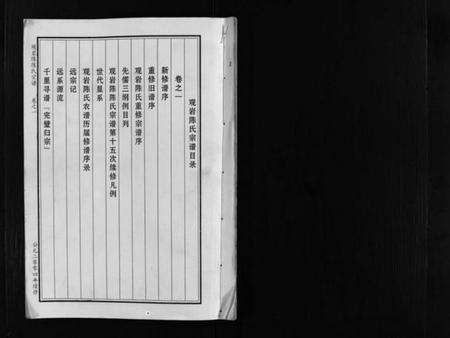 观岩陈氏宗谱目录
卷之一
新修谱序
重修旧谱序
观岩陈氏重修宗谱序
先儒三纲例目列
观岩陈氏宗谱第十五次续修凡例
世代显系
观岩陈氏衣谱历届修谱序录
远宗记
远系源流
千里寻谱「完璧归宗」
陈氏宗谱 卷之一
公元二零零四年续修